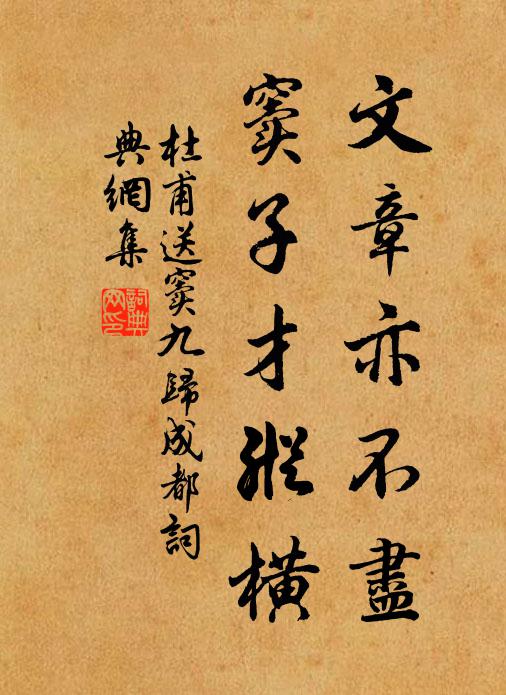 文章亦不盡
竇子才縱橫
杜甫送竇九歸成都詞
典網集
詞典
網印